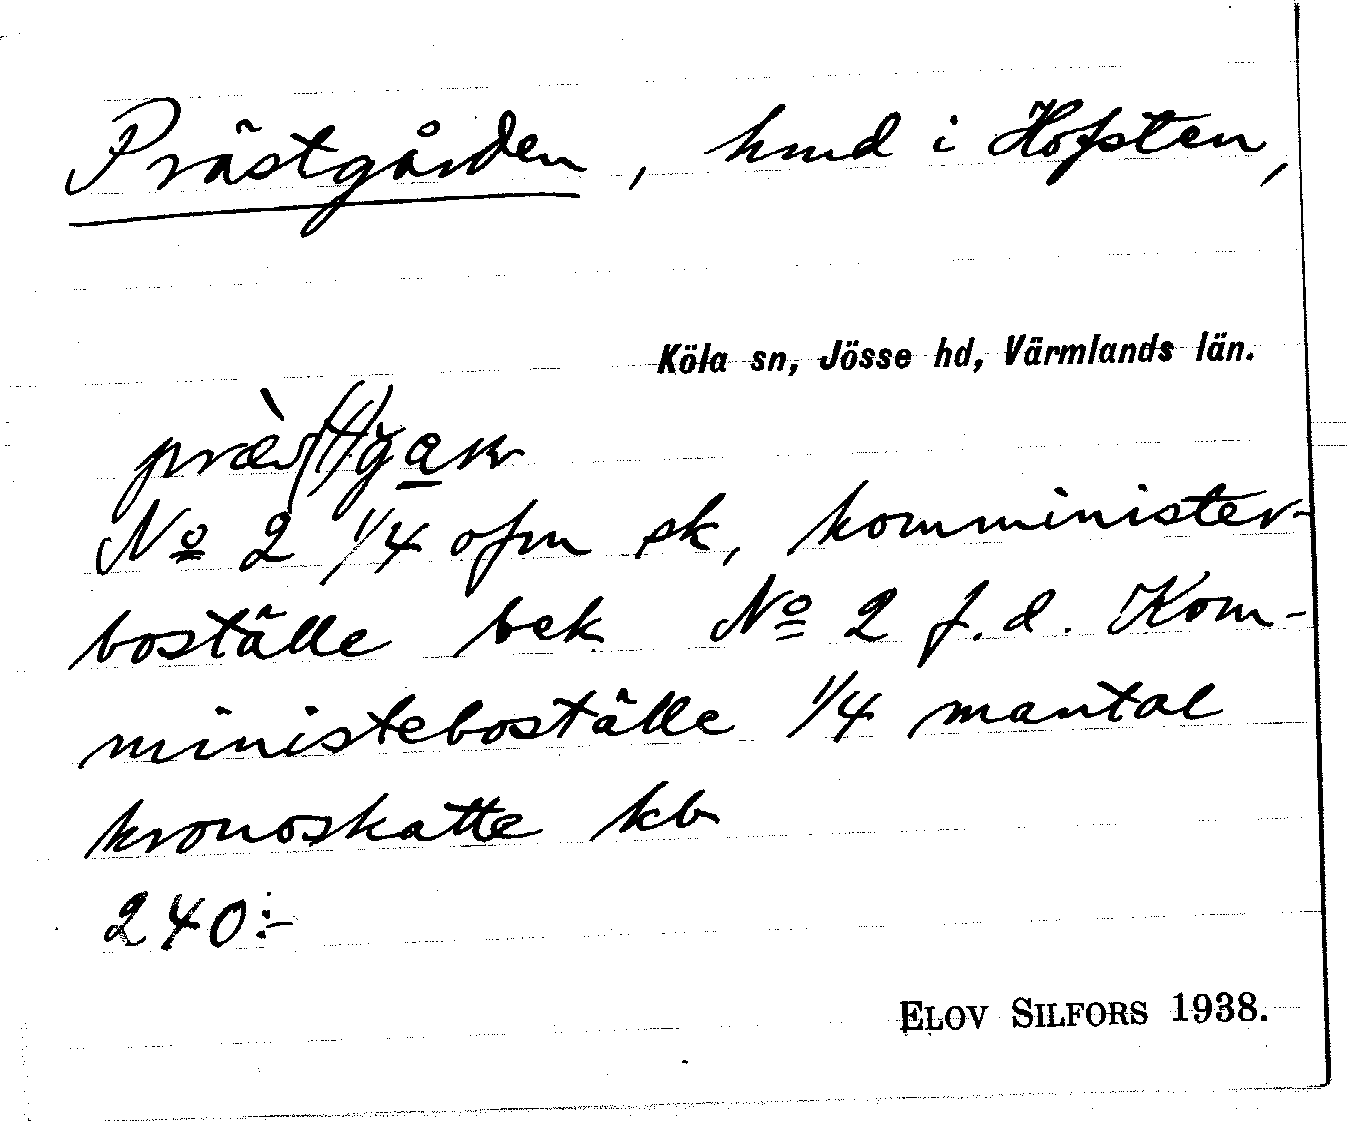 Prästgården, hmd i Hofsten,
Köla sn, Jösse hd, Värmlands län.
No 2 1/4 ofm sk, komminister-
boställe bek No 2 f.d. Kom-
ministeboställe 1/4 mantal
kronoskatte kb
240:-
ELOV SILFORS 1938.